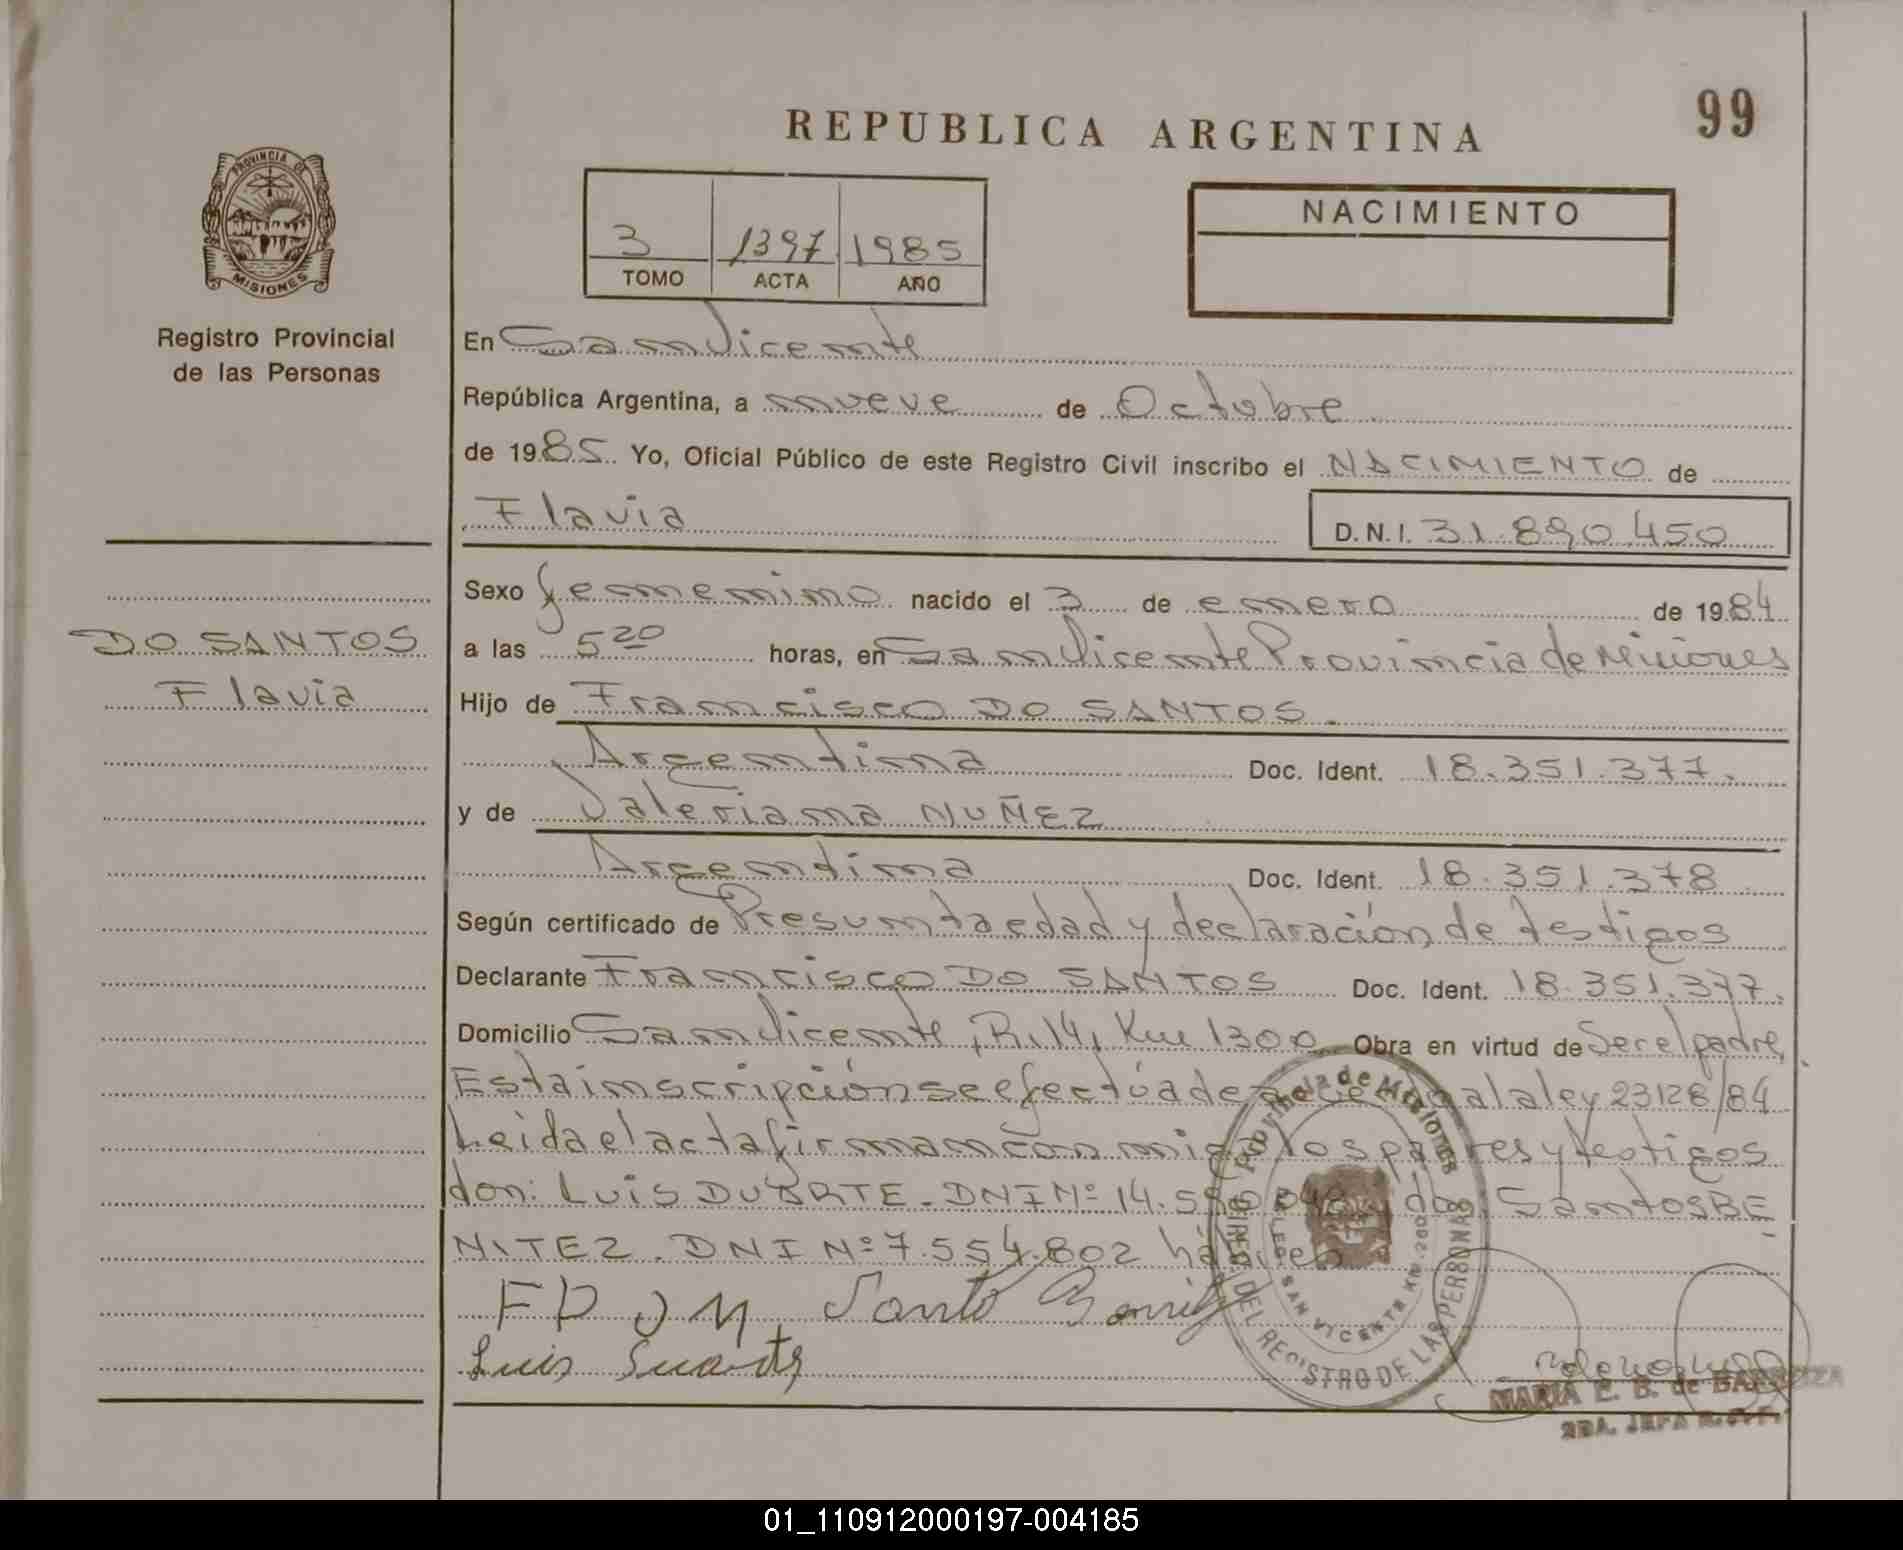 REPUBLICA ARGENTINA
99
PROVINCIA DE
MISIONES
Registro Provincial
de las Personas
3 1397 1985
TOMO ACTA AÑO
NACIMIENTO
En San Vicente
República Argentina, a nueve de Octubre
de 1985 Yo, Oficial Público de este Registro Civil inscribo el NACIMIENTO de
Flavia D.N.I. 31.890.450
DO SANTOS
Flavia
Sexo femenino nacido el 3 de enero de 1984
a las 5 20 horas, en San Vicente Provincia de Misiones
Hijo de Francisco DO SANTOS.
Argentina Doc. Ident. 18.351.377.
y de Valeriana NUÑEZ
Argentina Doc. Ident. 18.351.378
Según certificado de Presunta edad y declaración de testigos
Declarante Francisco DO SANTOS Doc. Ident. 18.351.377.
Domicilio San Vicente, R.14, Km 1300 Obra en virtud de Ser el padre,
Esta inscripción se efectúa de a la ley 23128/84
Leida el acta firman con migo los padres y testigos
don: LUIS DUARTE. DNI Nº 14. don Santos BE
NITEZ. DNI Nº 7.554.802 hábiles
F D V N Santo
Luis
Provincia de Misiones
DEL REGISTRO DE LAS PERSONAS
SAN VICENTE KM.
MARIA E. B. de
JEFA
01_110912000197-004185